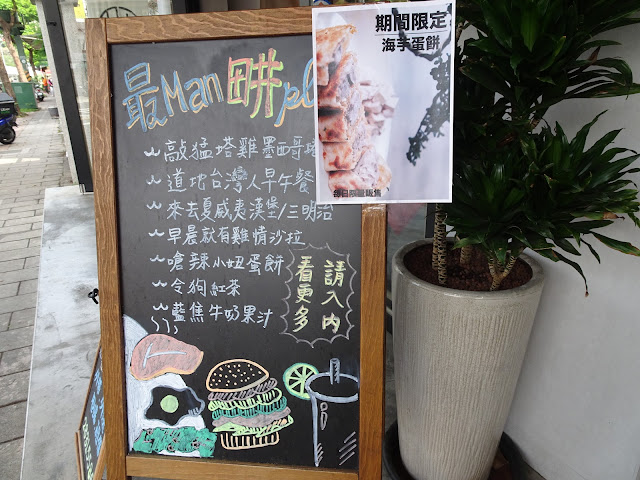 最Man田井pl
敲猛塔雞墨西哥
道地台灣人早午餐
來去夏威夷漢堡/三明治
早晨就有雞情沙拉
嗆辣小妞蛋餅
令狗紅茶
藍焦牛奶果汁
請入內
看更多
期間限定
海手蛋餅
每日限量販售